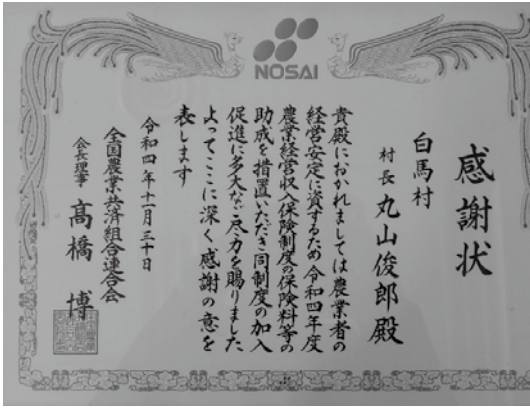 NOSAI
感謝状
白馬村
村長 丸山俊郎殿
貴殿におかれましては農業者の
経営安定に資するため令和四年度
農業経営収入保険制度の保険料等の
助成を措置いただき同制度の加入
促進に多大なご尽力を賜りました
よってここに深く感謝の意を
表します
令和四年十一月三十日
全国農業共済組合連合会
会長理事 髙橋 博